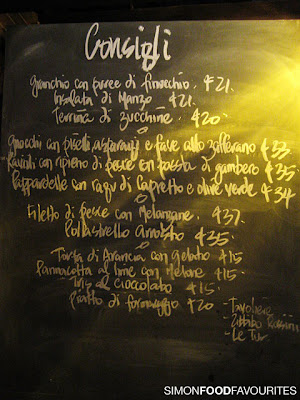 Consigli
granchio con purree di finocchio. $21.
Insalata di Manzo $21.
Terrina di zucchine. $20.
gnocchi con piselli, asparagi e fave allo zafferano $33
Ravioli con ripieno di pesce con passata di gambero $35
Pappardelle con ragù di Capretto e olive verde $34
Filetto di pesce con Melanzane. $37.
Pollastrello Arrosto $35.
Torta di Arancia con gelato $15
Pannacotta al lime con Melone $15
Tris al cioccolato $15
Piatto di formaggio $20
- Tavoliere
- Ubbiko
- Le Tur
SIMONFOODFAVOURITES